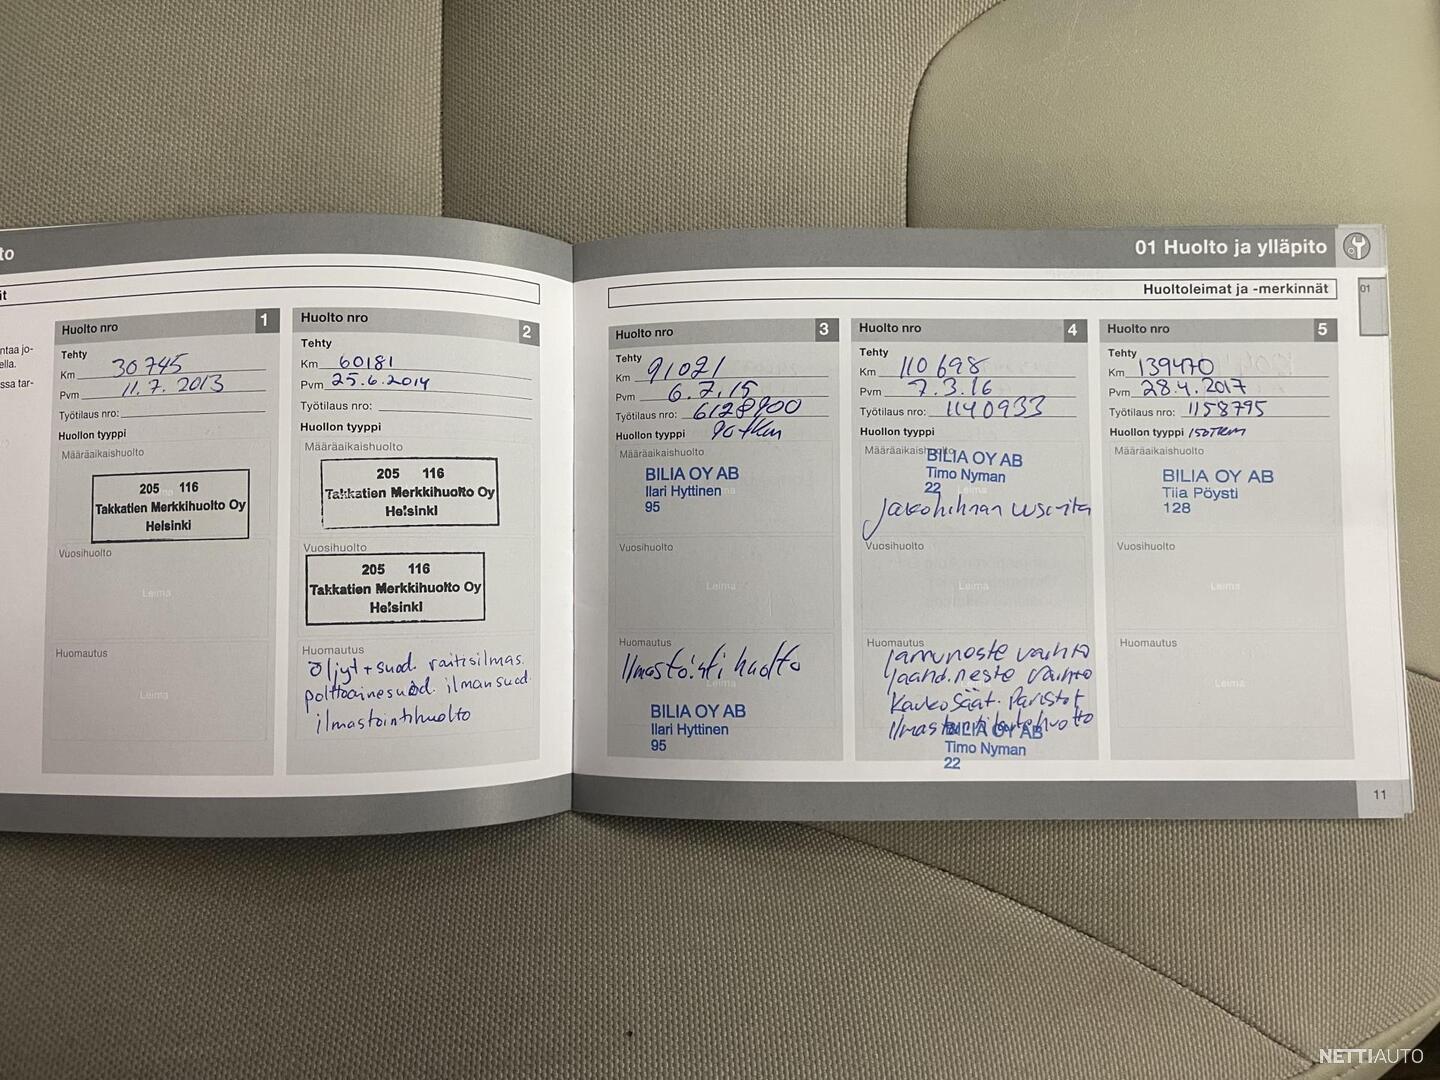 to
01 Huolto ja ylläpito
it
Huoltoleimat ja -merkinnät
01
ntaa jo-
ella.
ssa tar-
Huolto nro 1
Tehty
Km 30745
Pvm 11.7.2013
Työtilaus nro:
Huollon tyyppi
Määräaikaishuolto
205 116
Takkatien Merkkihuolto Oy
Helsinki
Vuosihuolto
Leima
Huomautus
Leima
Huolto nro 2
Tehty
Km 60181
Pvm 25.6.2014
Työtilaus nro:
Huollon tyyppi
Määräaikaishuolto
205 116
Takkatien Merkkihuolto Oy
Helsinki
Vuosihuolto
205 116
Takkatien Merkkihuolto Oy
Helsinki
Huomautus
Öljyt + suod. raitisilmas.
polttoainesuod. ilmansuod.
ilmastointihuolto
Huolto nro 3
Tehty
Km 91021
Pvm 6.7.15
Työtilaus nro: 6128900
Huollon tyyppi 90tkm
Määräaikaishuolto
BILIA OY AB
Ilari Hyttinen
95
Vuosihuolto
Leima
Huomautus
Ilmastointi huolto
Leima
BILIA OY AB
Ilari Hyttinen
95
Huolto nro 4
Tehty
Km 110698
Pvm 7.3.16
Työtilaus nro: 1140933
Huollon tyyppi
Määräaikaishuolto
BILIA OY AB
Timo Nyman
22
Leima
Jakohihnan uusinta
Vuosihuolto
Leima
Huomautus
jarruneste vaihto
jäähd.neste vaihto
Kaukosäät. Paristot
BILIA OY AB
Timo Nyman
22
Huolto nro 5
Tehty
Km 139470
Pvm 28.4.2017
Työtilaus nro: 1158795
Huollon tyyppi 150TKM
Määräaikaishuolto
BILIA OY AB
Tiia Pöysti
128
Vuosihuolto
Leima
Huomautus
Leima
11
NETTIAUTO